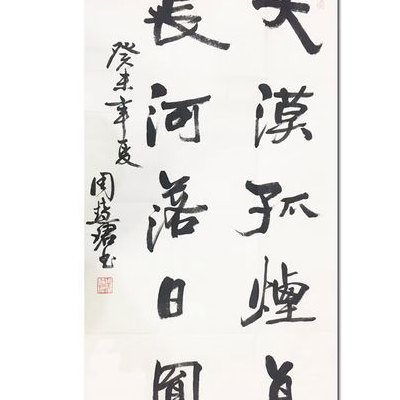 大漠孤煙直
長河落日圓
癸未年夏
周慧珺书